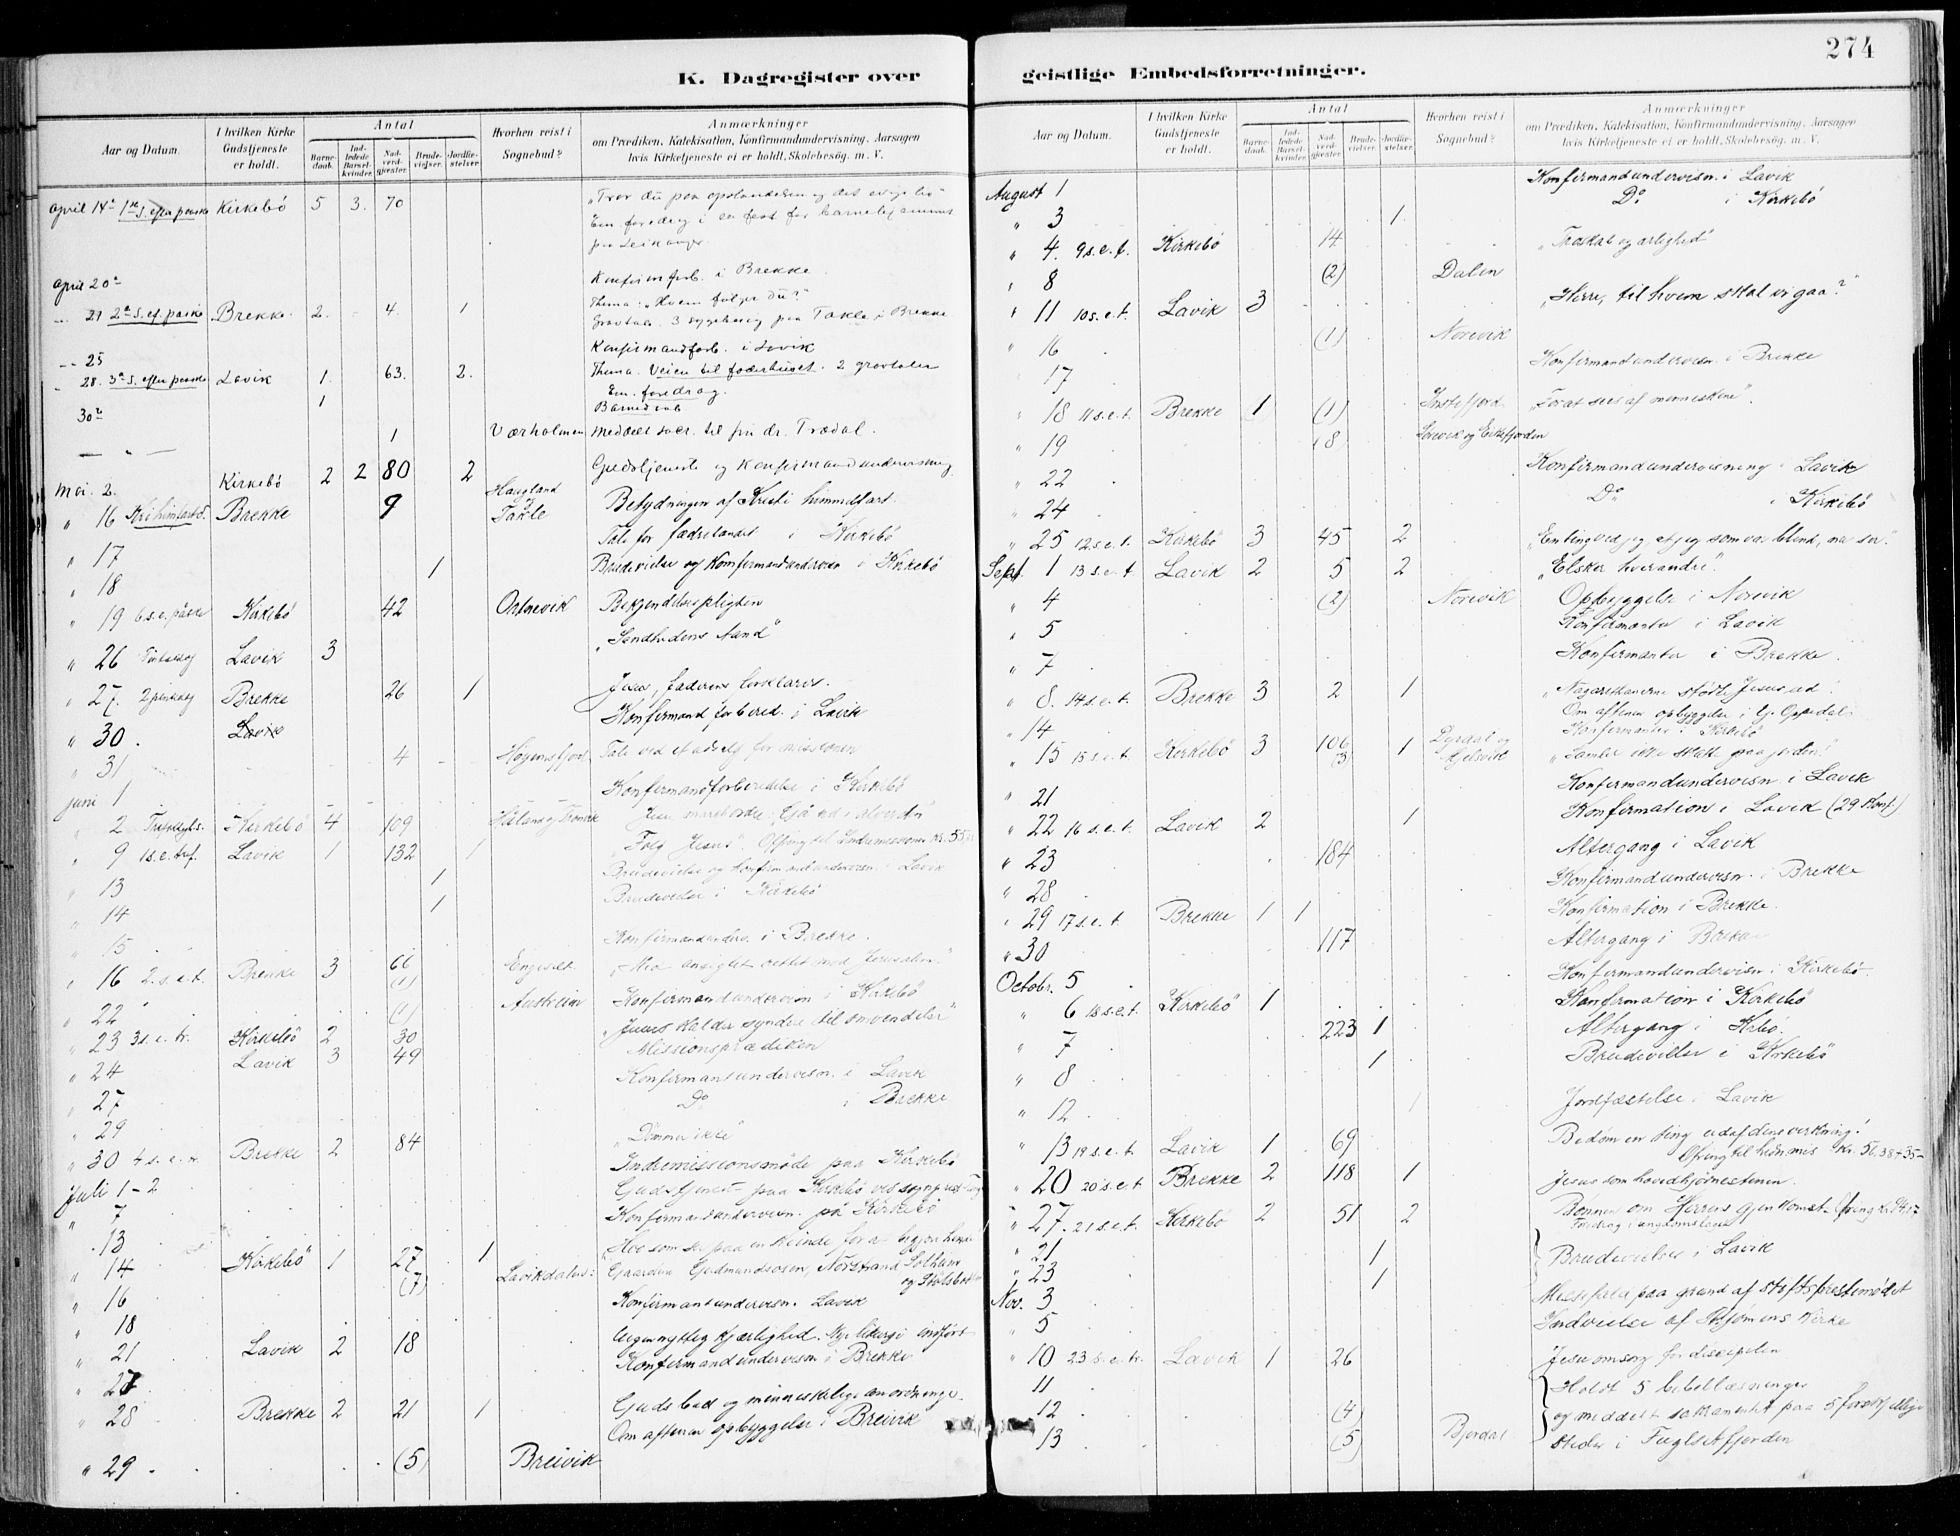 K. Dagregister over
Aar og Datum. | I hvilken Kirke Gudstjeneste er holdt. | Antal | Barnedaab. | Indledede Barselkvinder. | Nadverdgjester. | Brudevielser. | Jordfæstelser. | Hvorhen reist i Sognebud? | Anmærkninger om Prædiken, Katekisation, Konfirmandundervisning, Aarsagen hvis Kirketjeneste ei er holdt, Skolebesøg. m. V.
april 14de 1ste S. efter paaske Kirkebö 5 3. 70 „Tror du paa opstandelsen og det evige liv
Em. foredrag i en fest for barnehjemmet
paa Leikanger
april 20de Konfirm.forb. i Brekke.
21 2den S. ef. paaske Brekke. 2. 4. 1 Thema: „Hvem følger du?"
Gravtale. 3 sygebesøg paa Takle i Brekke
25 Konfirmandforb. i Lavik
28. 3die S. efter paaske Lavik 1. 63. 2. Thema. Veien til faderhuset. 2 gravtaler
Em. foredrag.
30te 1 Barnedaab
— " — 1 Værholmen meddelt sacr. til fru dr. Trædal.
Mai. 2. Kirkebö 2 2 80 2 Gudstjeneste og Konfirmandundervisning
" 16 Kr. himfartsd. Brekke 9 Haugland Takle Betydningen af Kristi himmelfart.
" 17 Tale for fædrelandet i Kirkebö
" 18 1 Brudevielse og Konfirmandundervisn i Kirkebö
" 19 6 s. e. påske Kirkebö 42 Ortnevik Bekjendelsespligten
" 26 Pintsedag Lavik 3 „Sandhedens Aand"
" 27. 2 pinsedag Brekke 26 1 Jesus, faderens forklarer.
" 30 Lavik Konfirmandforbered. i Lavik
" 31 4 Tale ved et udsalg for missionen
juni 1 Konfirmandforberedelse i Kirkebö
" 2 Kirkebö 4 109
" 9 1 s. e. tref. Lavik 1 132 1 „Følg Jesus". Ofring til Indremissionen
" 13 1 Brudevielse og Konfirmandundervisn. i Lavik
" 14 1 Brudevielse i Kirkebö
" 15 Konfirmandunderv. i Brekke.
" 16 2. s. e. t. Brekke 3 66 (1) Engesæt „Med ansigtet vettet mod Jerusalem"
" 22 (1) Austreim Konfirmandundervisn i Kirkebö
" 23 3 s. e. tr. Kirkebö 2 30 „Jesus kalder syndere til omvendelse"
" 24 Lavik 3 49 Missionsprædiken
" 27 Konfirmantundervisn. i Lavik
" 29 Do i Brekke
" 30 4 s. e. tr. Brekke 2 84 „Dömmer ikke"
Juli 1 - 2 Indremissionsmöde paa Kirkebö
" 7 Gudstjenest paa Kirkebö
" 13 Konfirmandundervisn. på Kirkebö
" 14 Kirkebö 1 27 1
" 16 (7) Lavikdalen: Gaardene Gudmundsosen, Norstrand
" 18 Konfirmantundervisn. Lavik
" 21 Lavik 2 18 Uegennyttig kjærlighed. Nye liturgi indført
" 27 Konfirmandundervisn i Brekke
" 28 Brekke 2 21 1 Guds bud og menneskelige anordninge
Om aftenen opbyggelse i Breivik
" 29 (5) Breivik
geistlige Embedsforretninger.
274
Aar og Datum. | I hvilken Kirke Gudstjeneste er holdt. | Antal | Barnedaab. | Indledede Barselkvinder. | Nadverdgjester. | Brudevielser. | Jordfæstelser. | Hvorhen reist i Sognebud? | Anmærkninger om Prædiken, Katekisation, Konfirmandundervisning, Aarsagen hvis Kirketjeneste ei er holdt, Skolebesøg. m. V.
August 1 Konfirmandundervisn. i Lavik
" 3 1. Do i Kirkebö
" 4. 9 s. e. t. Kirkebö 14 „Troskab og ærlighed"
" 8 (2) Dalen
" 11 10 s. e. t. Lavik 3 „Herre, til hvem skal vi gaa?"
" 16 (1) Norevik
" 17 Konfirmandundervisn. i Brekke
" 18 11 s. e. t. Brekke 1 (1) Instefjord „For at sees af menneskene".
" 19 (8)
" 22 Konfirmandundervisning i Lavik
" 24 Do i Kirkebö
" 25 12 s. e. t. Kirkebö 3 45 2 „En ting ved jeg, at jeg som var blind, nu ser."
Sept. 1 13 s. e. t. Lavik 2 5 2 „Elsker hverandre".
" 4 (2) Norevik Opbyggelse i Norevik
" 5 Konfirmanter i Lavik
" 7 Konfirmanter i Brekke.
" 8. 14 s. e. t. Brekke 3 2 1 „Nazaræerne stødte Jesus ud.
Om aftenen opbyggelse i Oppedal
" 14 Konfirmanter i Kirkebö
" 15 15 s. e. t. Kirkebö 3 106 (3) 1 Dyrdal og „Samler ikke skatte paa jorden!"
" 21 Konfirmandundervisn. i Lavik
" 22 16 s. e. t. Lavik 2 1 Konfirmation i Lavik (29 Konf.)
" 23 184 Altergang i Lavik
" 28 Konfirmandundervisn. i Brekke
" 29 17 s. e. t. Brekke 1 1 Konfirmation i Brekke.
" 30 117 Altergang i Brekke
Octobr. 5 Konfirmandundervisn i Kirkebö
" 6 18 s. e. t. Kirkebö 1 Konfirmation i Kirkebö
" 7 223 1 Altergang i Kirkbö.
" 8 1 Brudevielse i Kirkebö
" 12 1 Jordfæstelse i Lavik
" 13 19 s. e. t. Lavik 1 69 Bedøm en ting ud af dens virkning!
Ofring til hedn.mis Kr. 56,38 + 35-
" 20 20 s. e. t. Brekke 2 118 1 Jesus som hovedhjørnestenen.
" 27. 21 s. e. t. Kirkebö 2 51 2 Bønnen om Herrens gjenkomst
Foredrag i ungdomslaget
" 21 1 Brudevielser i Lavik
" 23 1
Nov. 3 Messefald paa grund af stiftsprestemødet
" 5 Indvielse af St Jørgens Kirke
" 10 23 s. e. tr. Lavik 1 26 Jesu omsorg for disciplen
11 Holdt 5 bibellæsninger
" 12 (4) og meddelt sakramentet paa 5 forskjellige
" 13 (5) Bjordal steder i Fuglsetfjorden